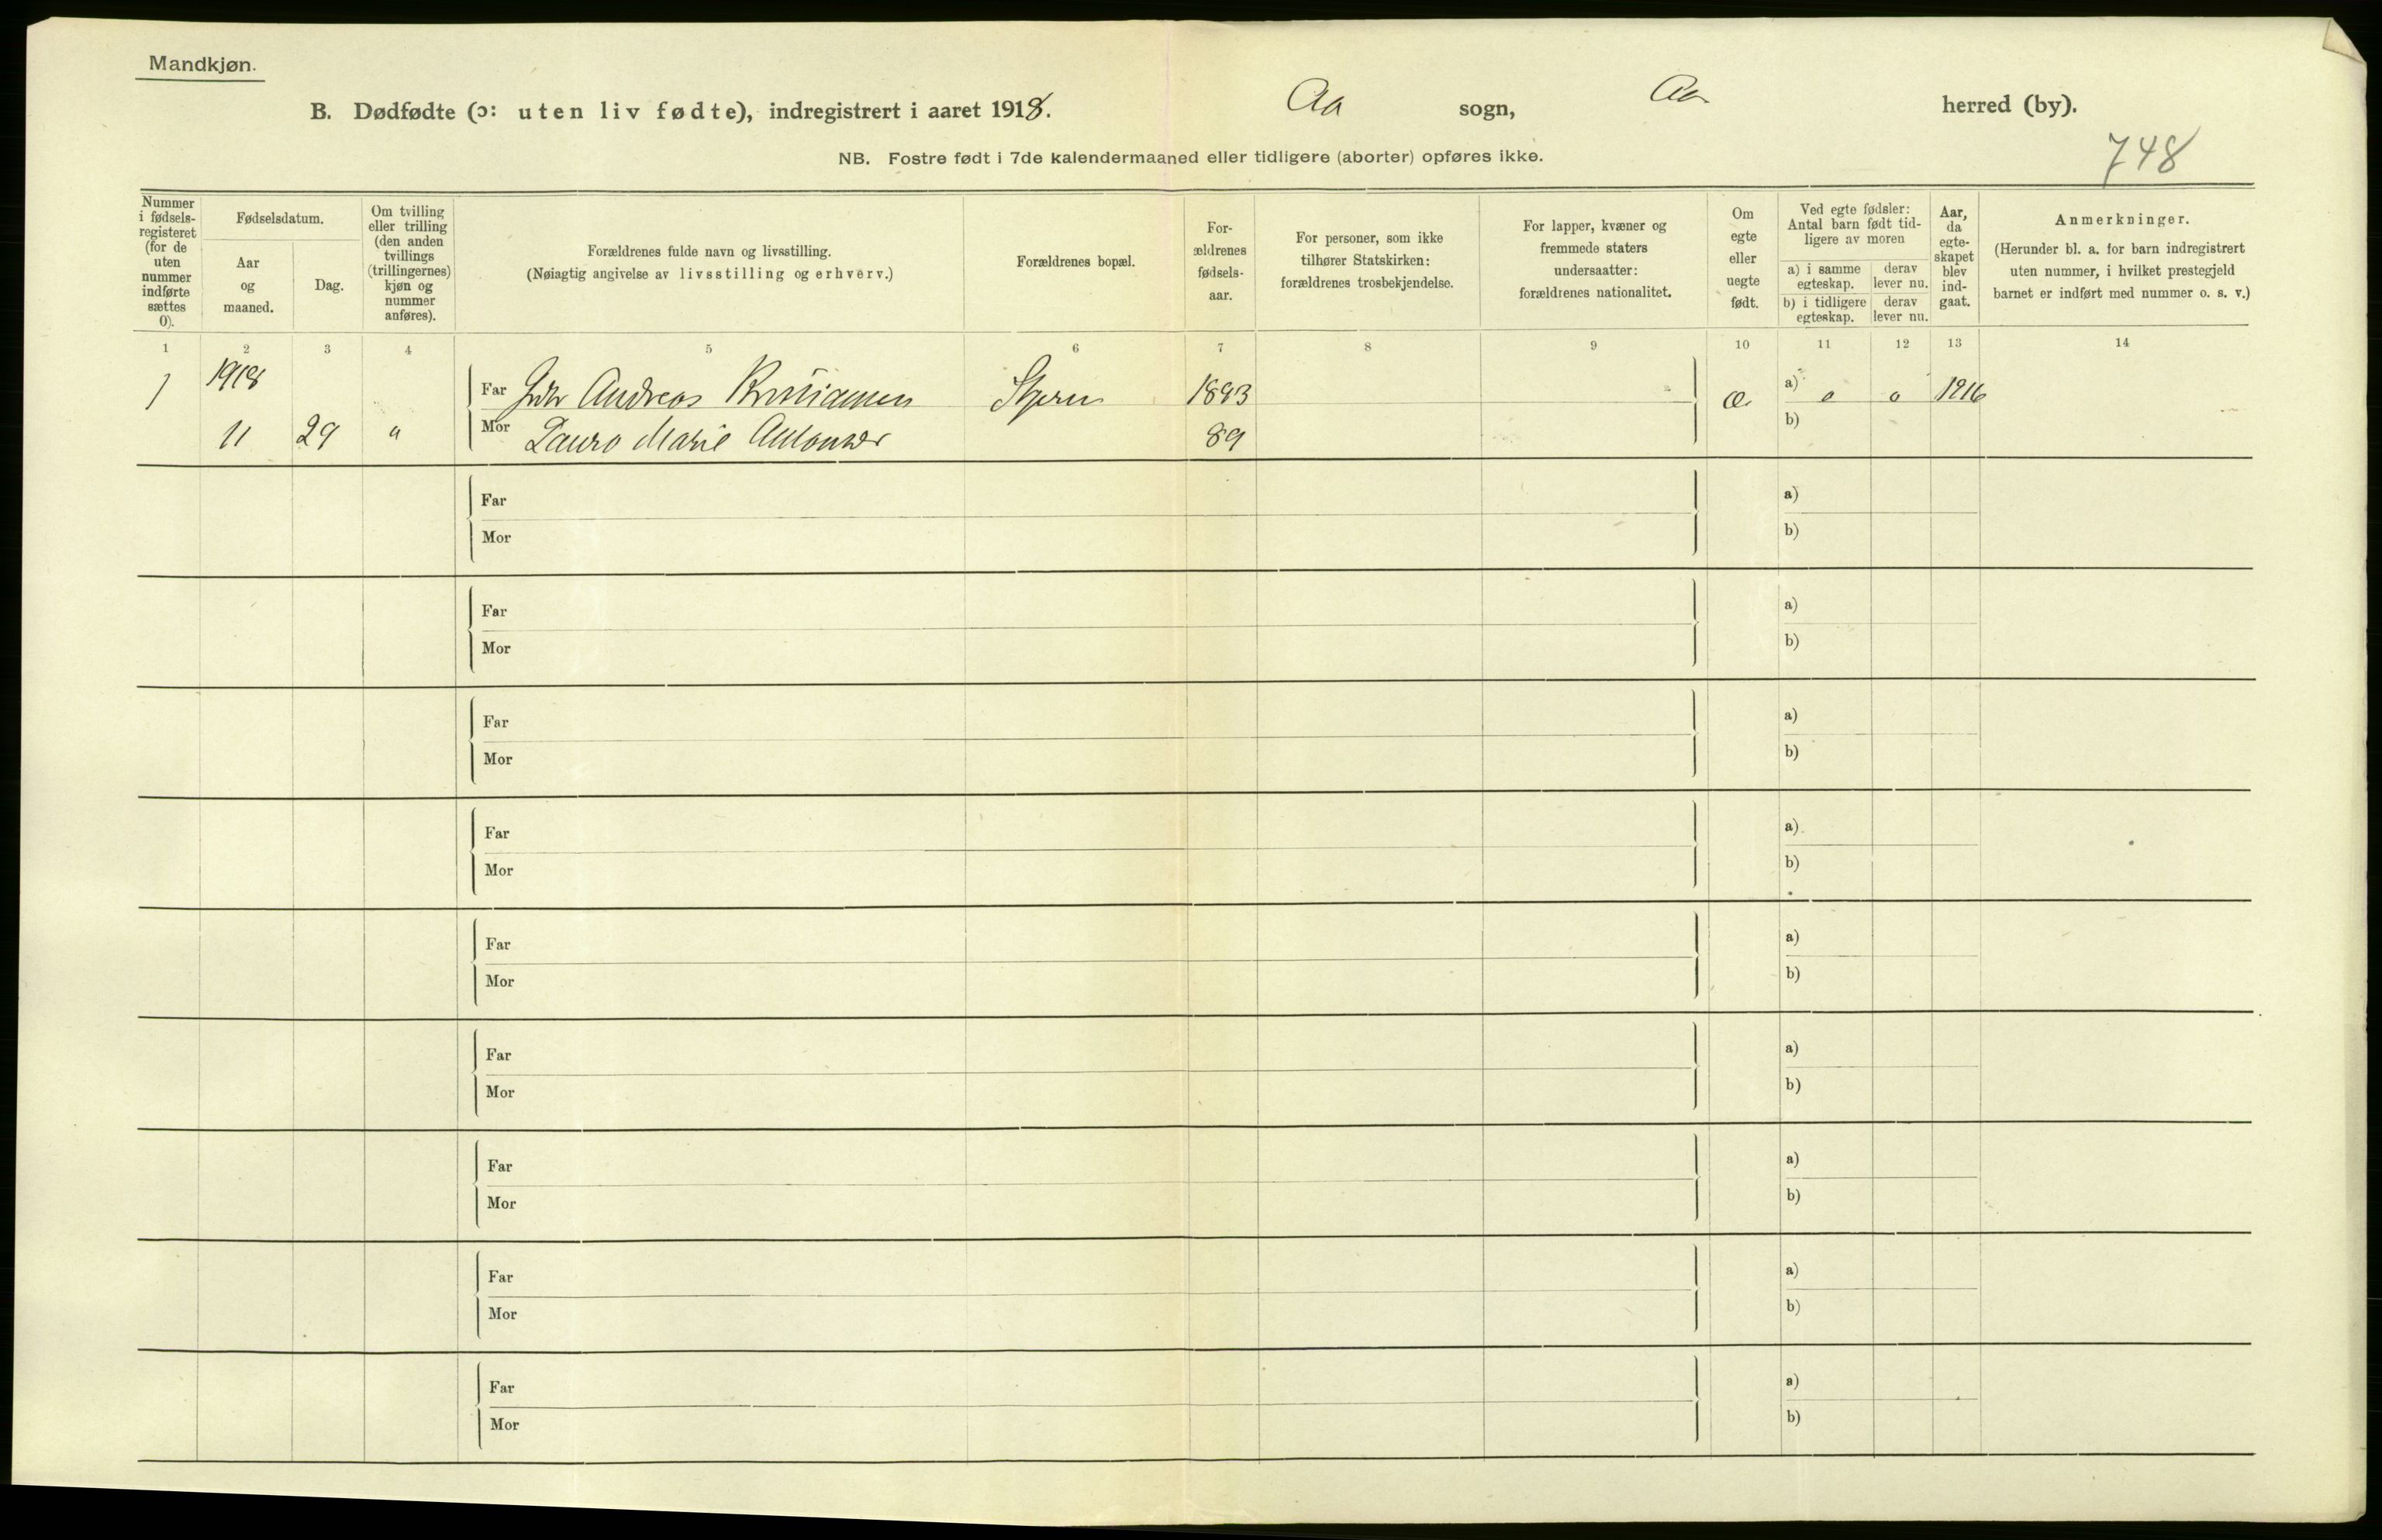 Mandkjøn.
B. Dødfødte (ɔ: uten liv fødte), indregistrert i aaret 1918. Aa sogn, Aa herred (by).
NB. Fostre født i 7de kalendermaaned eller tidligere (aborter) opføres ikke.
748
Nummer i fødsels-registeret (for de uten nummer indførte sættes 0).
Fødselsdatum.
Aar og maaned.
Dag.
Om tvilling eller trilling (den anden tvillings (trillingernes) kjøn og nummer anføres).
Forældrenes fulde navn og livsstilling.
(Nøiagtig angivelse av livsstilling og erhverv.)
Forældrenes bopæl.
For-ældrenes fødsels-aar.
For personer, som ikke tilhører Statskirken: forældrenes trosbekjendelse.
For lapper, kvæner og fremmede staters undersaatter: forældrenes nationalitet.
Om egte eller uegte født.
Ved egte fødsler: Antal barn født tid-ligere av moren
a) i samme egteskap. derav lever nu.
b) i tidligere egteskap. derav lever nu.
Aar, da egte-skapet blev ind-gaat.
Anmerkninger.
(Herunder bl. a. for barn indregistrert uten nummer, i hvilket prestegjeld barnet er indført med nummer o. s. v.)
1 2 3 4 5 6 7 8 9 10 11 12 13 14
1 1918 Far Andreas Kristiansen 1893 Æ. a) 0 0 1916
11 29 " Mor Laura Marie 89 b)
Far a)
Mor b)
Far a)
Mor b)
Far a)
Mor b)
Far a)
Mor b)
Far a)
Mor b)
Far a)
Mor b)
Far a)
Mor b)
Far a)
Mor b)
Far a)
Mor b)